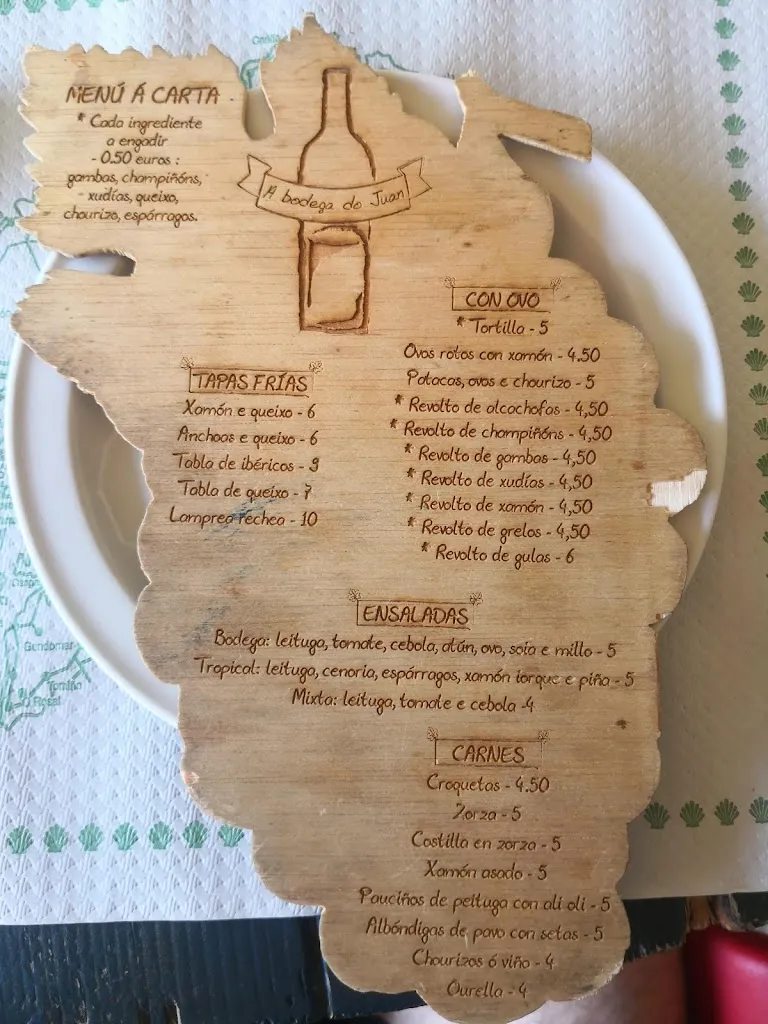 MENÚ Á CARTA
* Cada ingrediente
a engadir
- 0.50 euros :
gambas, champiñóns,
xudías, queixo,
chourizo, espárragos.
A bodega do Juan
TAPAS FRÍAS
Xamón e queixo - 6
Anchoas e queixo - 6
Tabla de ibéricos - 9
Tabla de queixo - 7
Lamprea rechea - 10
CON OVO
* Tortilla - 5
Ovos rotos con xamón - 4.50
Patacas, ovos e chourizo - 5
* Revolto de alcachofas - 4,50
* Revolto de champiñóns - 4,50
* Revolto de gambas - 4,50
* Revolto de xudías - 4,50
* Revolto de xamón - 4,50
* Revolto de grelos - 4,50
* Revolto de gulas - 6
ENSALADAS
Bodega: leituga, tomate, cebola, atún, ovo, soia e millo - 5
Tropical: leituga, cenoria, espárragos, xamón iorque e piña - 5
Mixta: leituga, tomate e cebola -4
CARNES
Croquetas - 4.50
Zorza - 5
Costilla en zorza - 5
Xamón asado - 5
Pauciños de peituga con ali oli - 5
Albóndigas de pavo con setas - 5
Chourizos ó viño - 4
Ourella - 4
Gondomar
Tomiño
Rosal